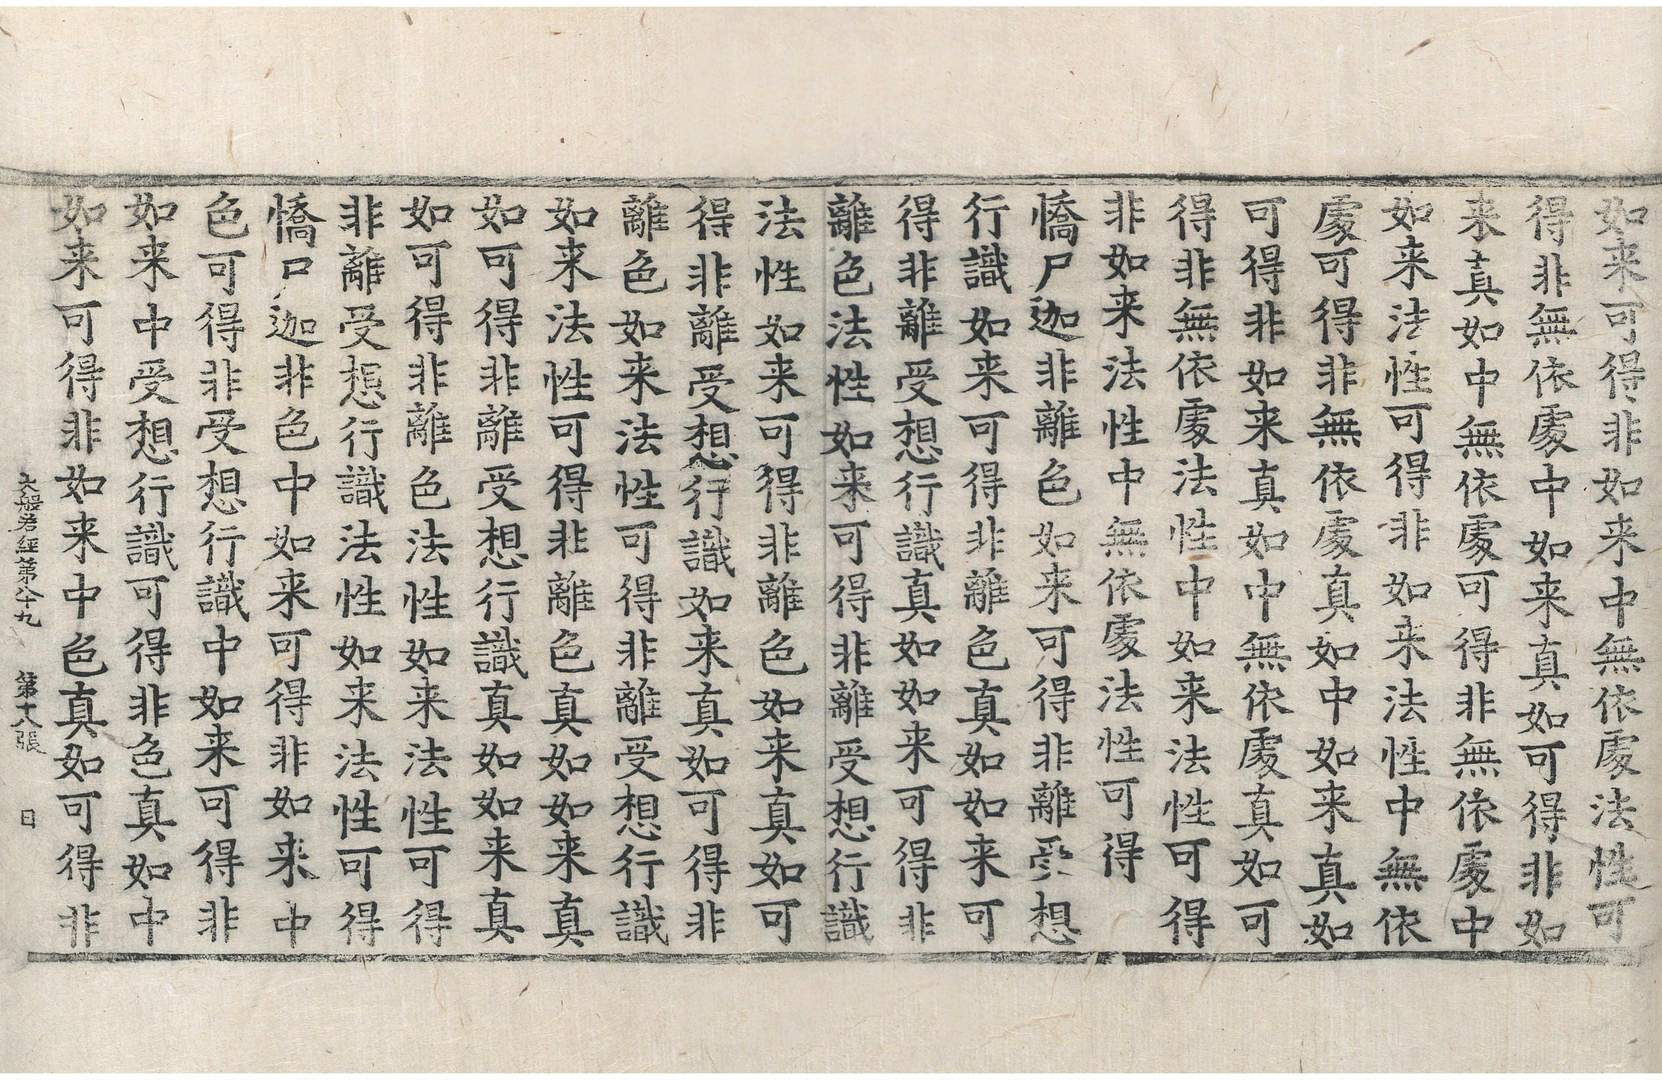 如来可得非如来中無依處法性可
得非無依處中如来真如可得非如
来真如中無依處可得非無依處中
如来法性可得非如来法性中無依
處可得非無依處真如中如来真如
可得非如来真如中無依處真如可
得非無依處法性中如来法性可得
非如来法性中無依處法性可得
憍尸迦非離色如来可得非離受想
行識如来可得非離色真如如来可
得非離受想行識真如如来可得非
離色法性如来可得非離受想行識
法性如来可得非離色如来真如可
得非離受想行識如来真如可得非
離色如来法性可得非離受想行識
如来法性可得非離色真如如来真
如可得非離受想行識真如如来真
如可得非離色法性如来法性可得
非離受想行識法性如来法性可得
憍尸迦非色中如来可得非如来中
色可得非受想行識中如来可得非
如来中受想行識可得非色真如中
如来可得非如来中色真如可得非
大般若經第八十九 第十八張 日